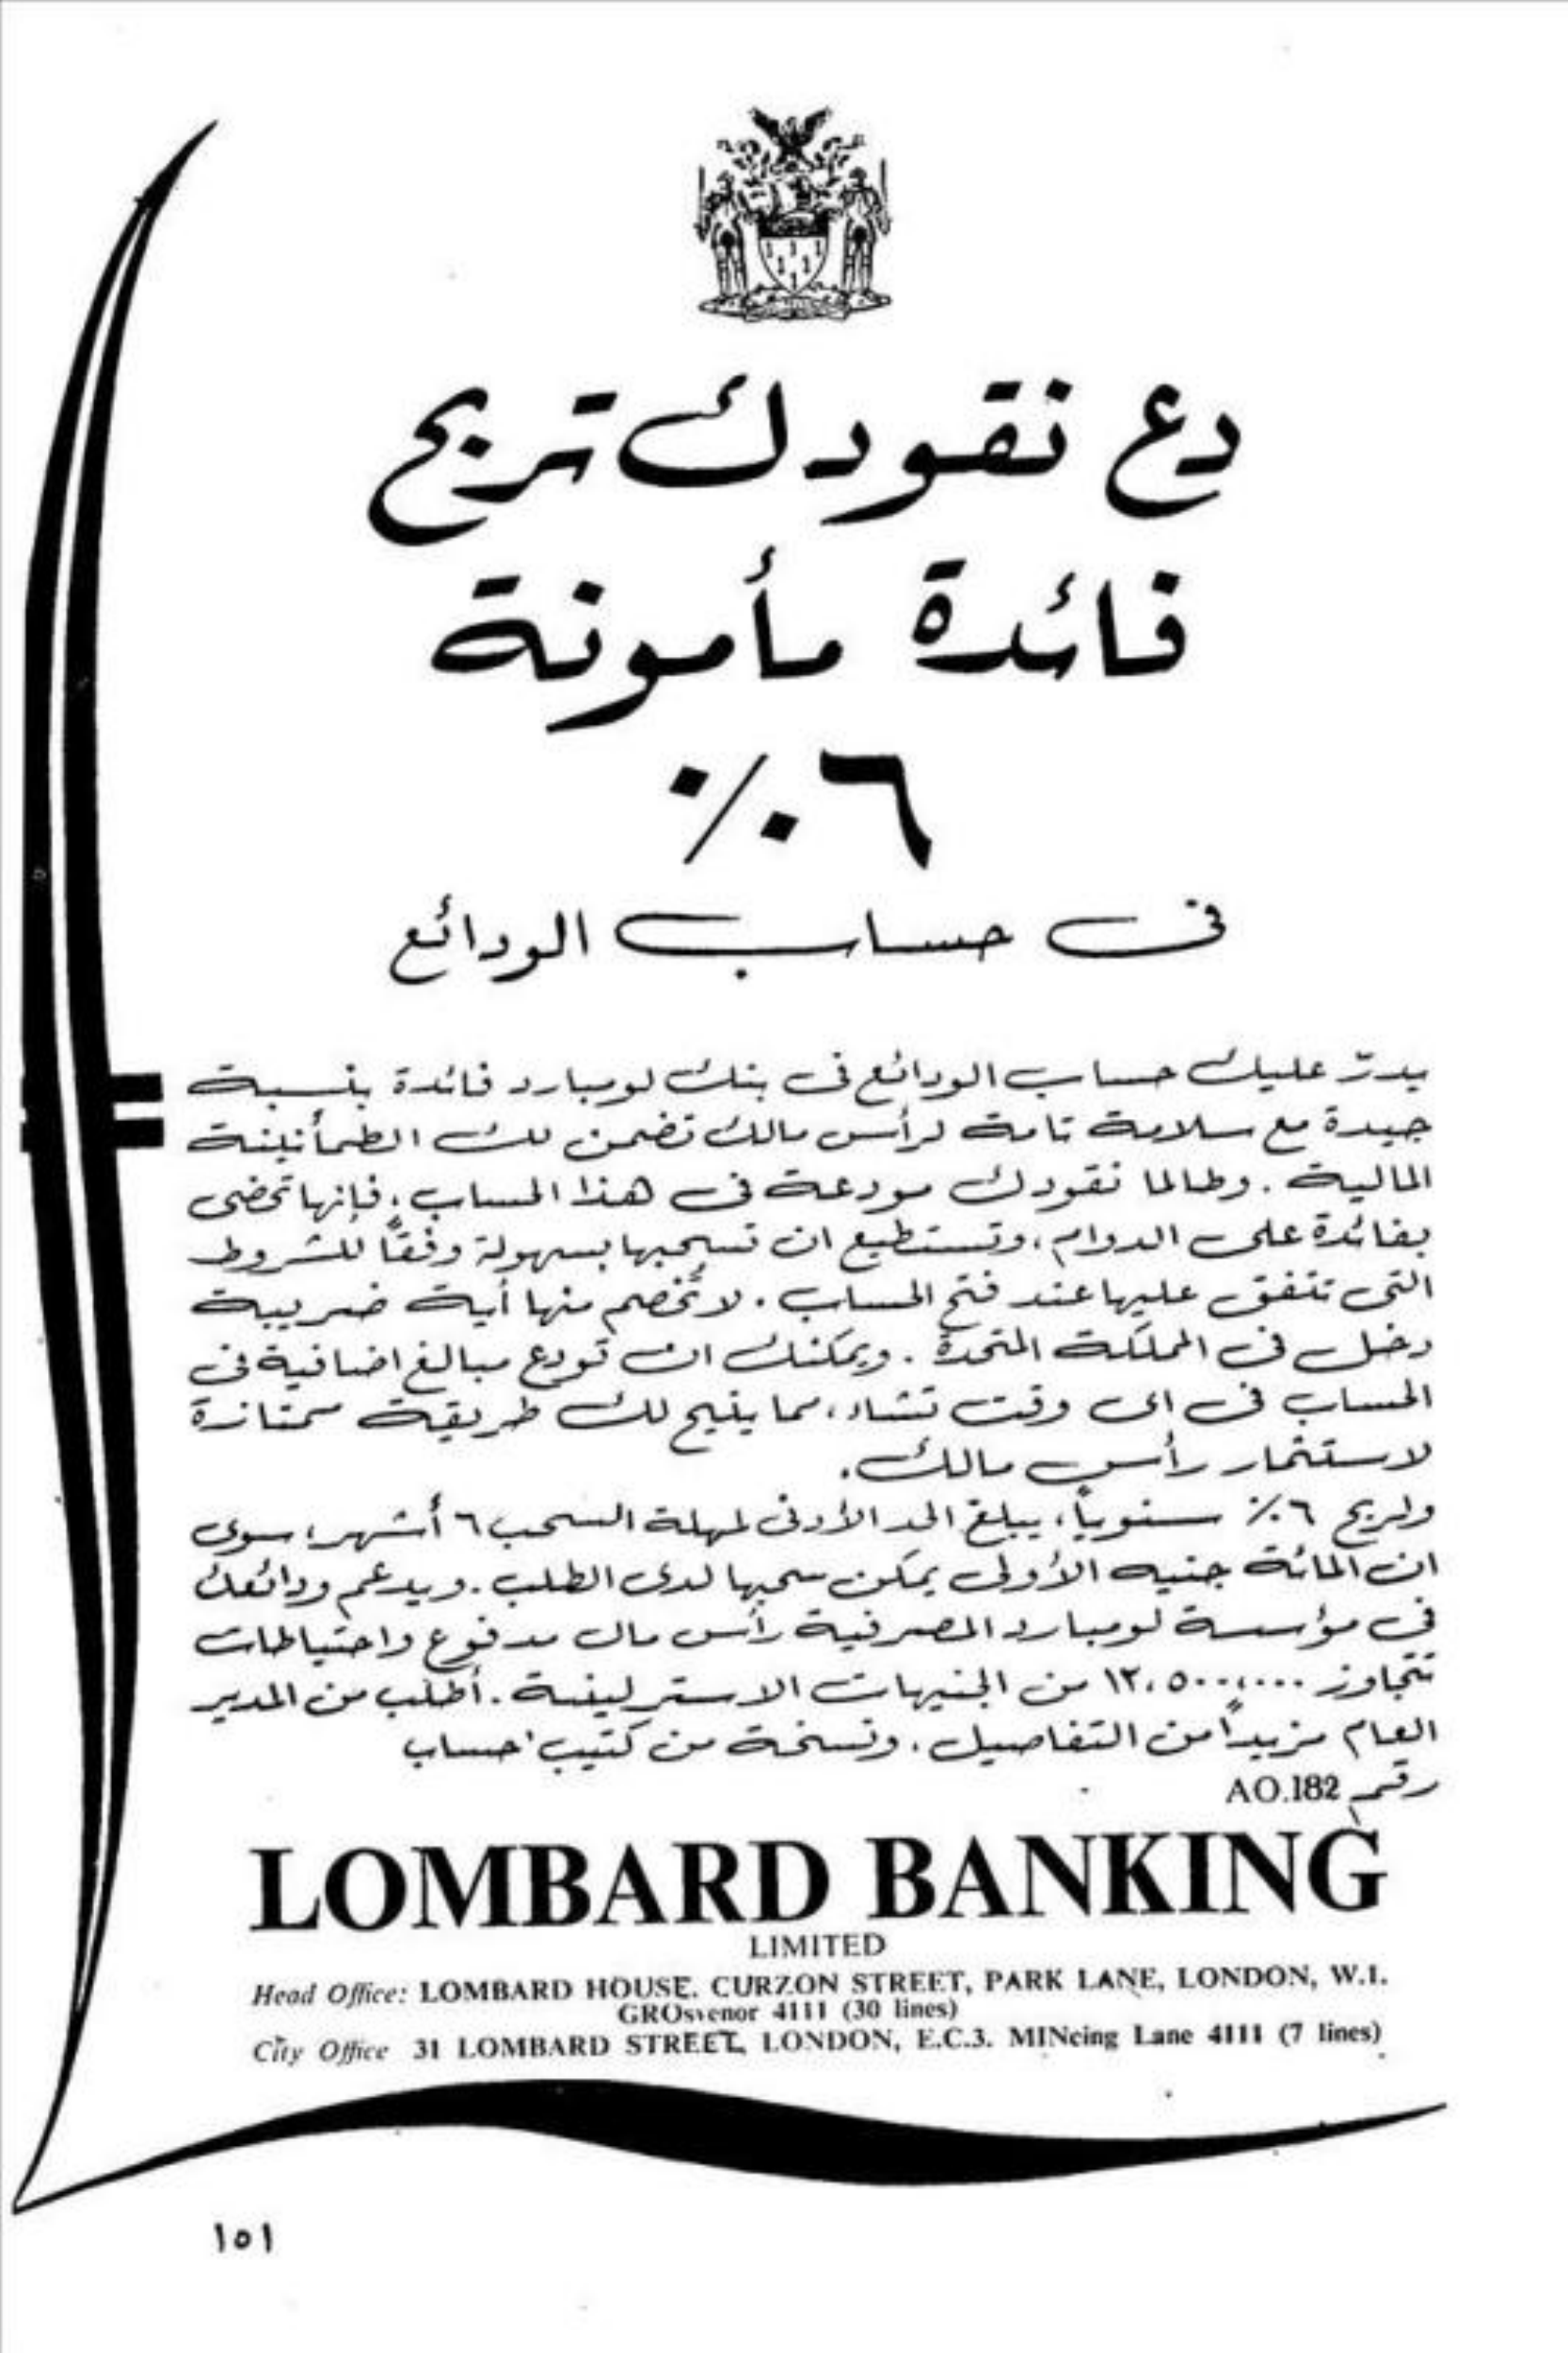 دع نقودك تربح
فائدة مأمونة
٦٪
فى حساب الودائع
يدرّ عليك حساب الودائع فى بنك لومبارد فائدة بنسبة
جيدة مع سلامة تامة لرأس مالك تضمن لك الطمأنينة
المالية . وطالما نقودك مودعة فى هذا الحساب ، فإنها تحضى
بفائدة على الدوام ، وتستطيع ان تسحبها بسهولة وفقاً للشروط
التى تتفق عليها عند فتح الحساب . لا تُخصم منها أية ضريبة
دخل فى المملكة المتحدة . ويمكنك ان تودع مبالغ اضافية فى
الحساب فى اى وقت تشاء ، مما يتيح لك طريقة ممتازة
لاستثمار رأس مالك .
ولربح ٦٪ سنوياً ، يبلغ الحد الأدنى لمهلة السحب ٦ أشهر ؛ سوى
ان المائة جنيه الأولى يمكن سحبها لدى الطلب . ويدعم ودائعك
فى مؤسسة لومبارد المصرفية رأس مال مدفوع واحتياطات
تتجاوز ١٢،٥٠٠،٠٠٠ من الجنيهات الاسترلينية . أطلب من المدير
العام مزيداً من التفاصيل ، ونسخة من كتيب احساب
رقم AO.182
LOMBARD BANKING
LIMITED
Head Office: LOMBARD HOUSE, CURZON STREET, PARK LANE, LONDON, W.1.
GROsvenor 4111 (30 lines)
City Office 31 LOMBARD STREET, LONDON, E.C.3. MINcing Lane 4111 (7 lines)
١٥١